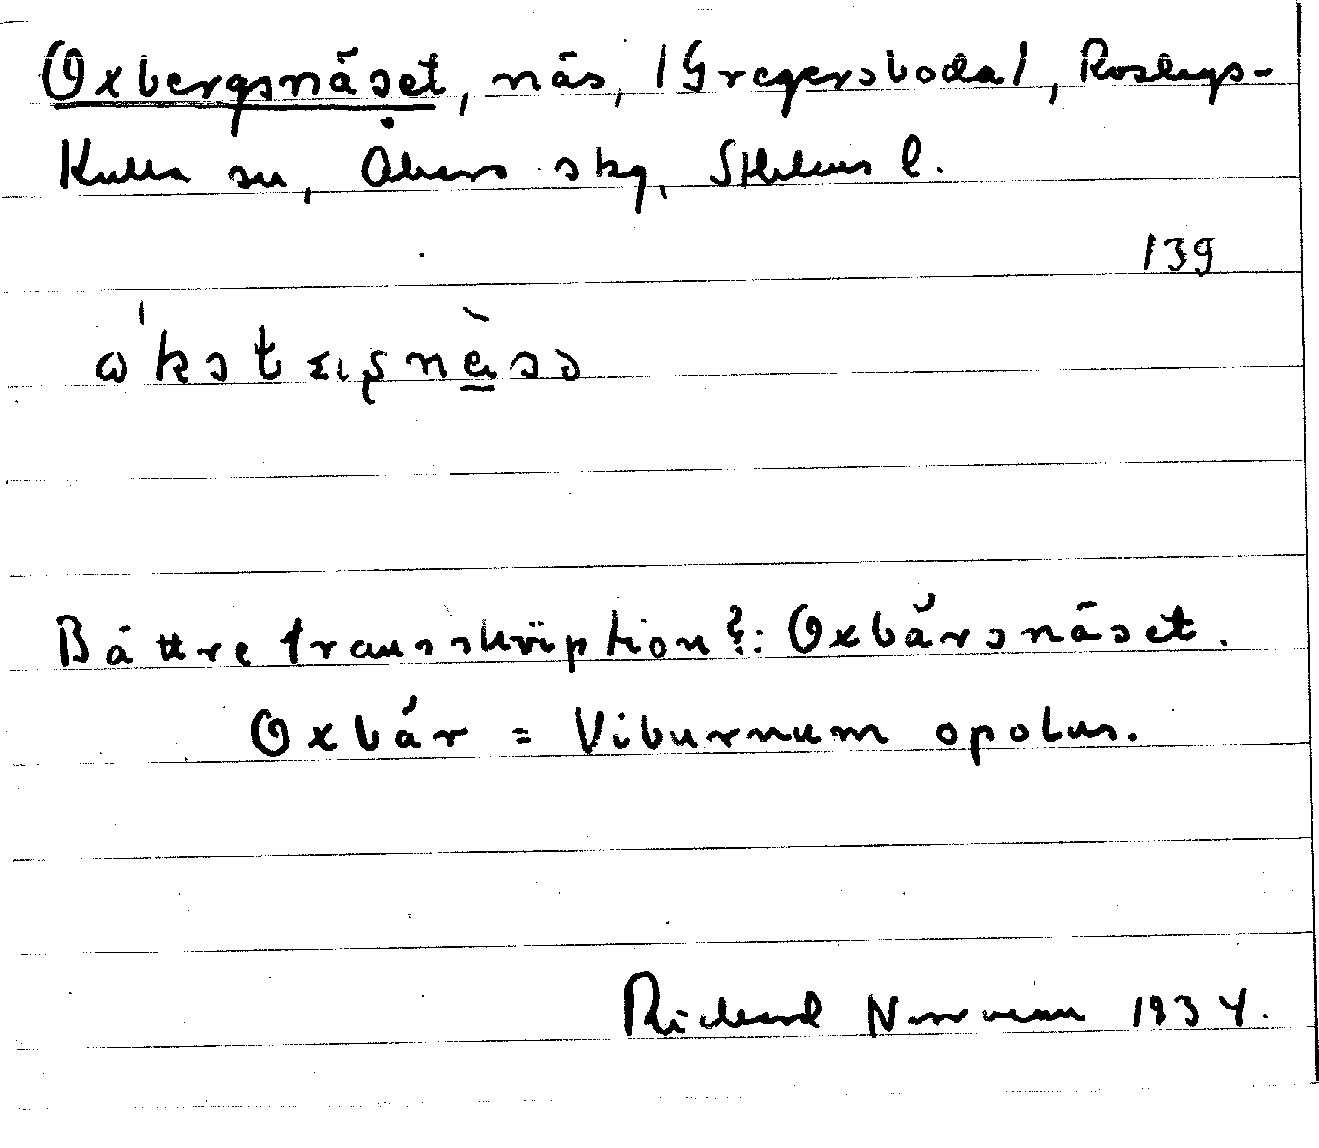 Oxbergsnäset, näs, /Gregersboda/, Roslags-
Kulla sn, Åkers skg, Sthlms l.
139
Bättre transskription?: Oxbärsnäset.
Oxbär = Viburnum opolus.
Richard Norrman 1934.